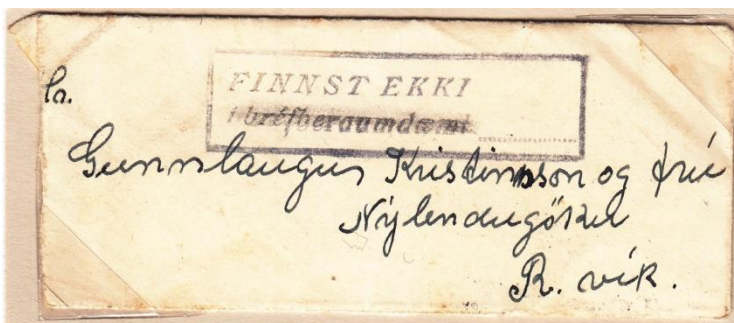 FINNST EKKI
í bréfberaumdæmi
hr.
Gunnlaugur Kristinnsson og frú
Nýlendugötu
R. vík.